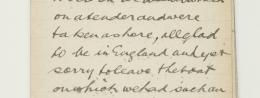 on a tender and were
taken ashore, all glad
to be in England and yet
sorry to leave the boat
on which we had such an